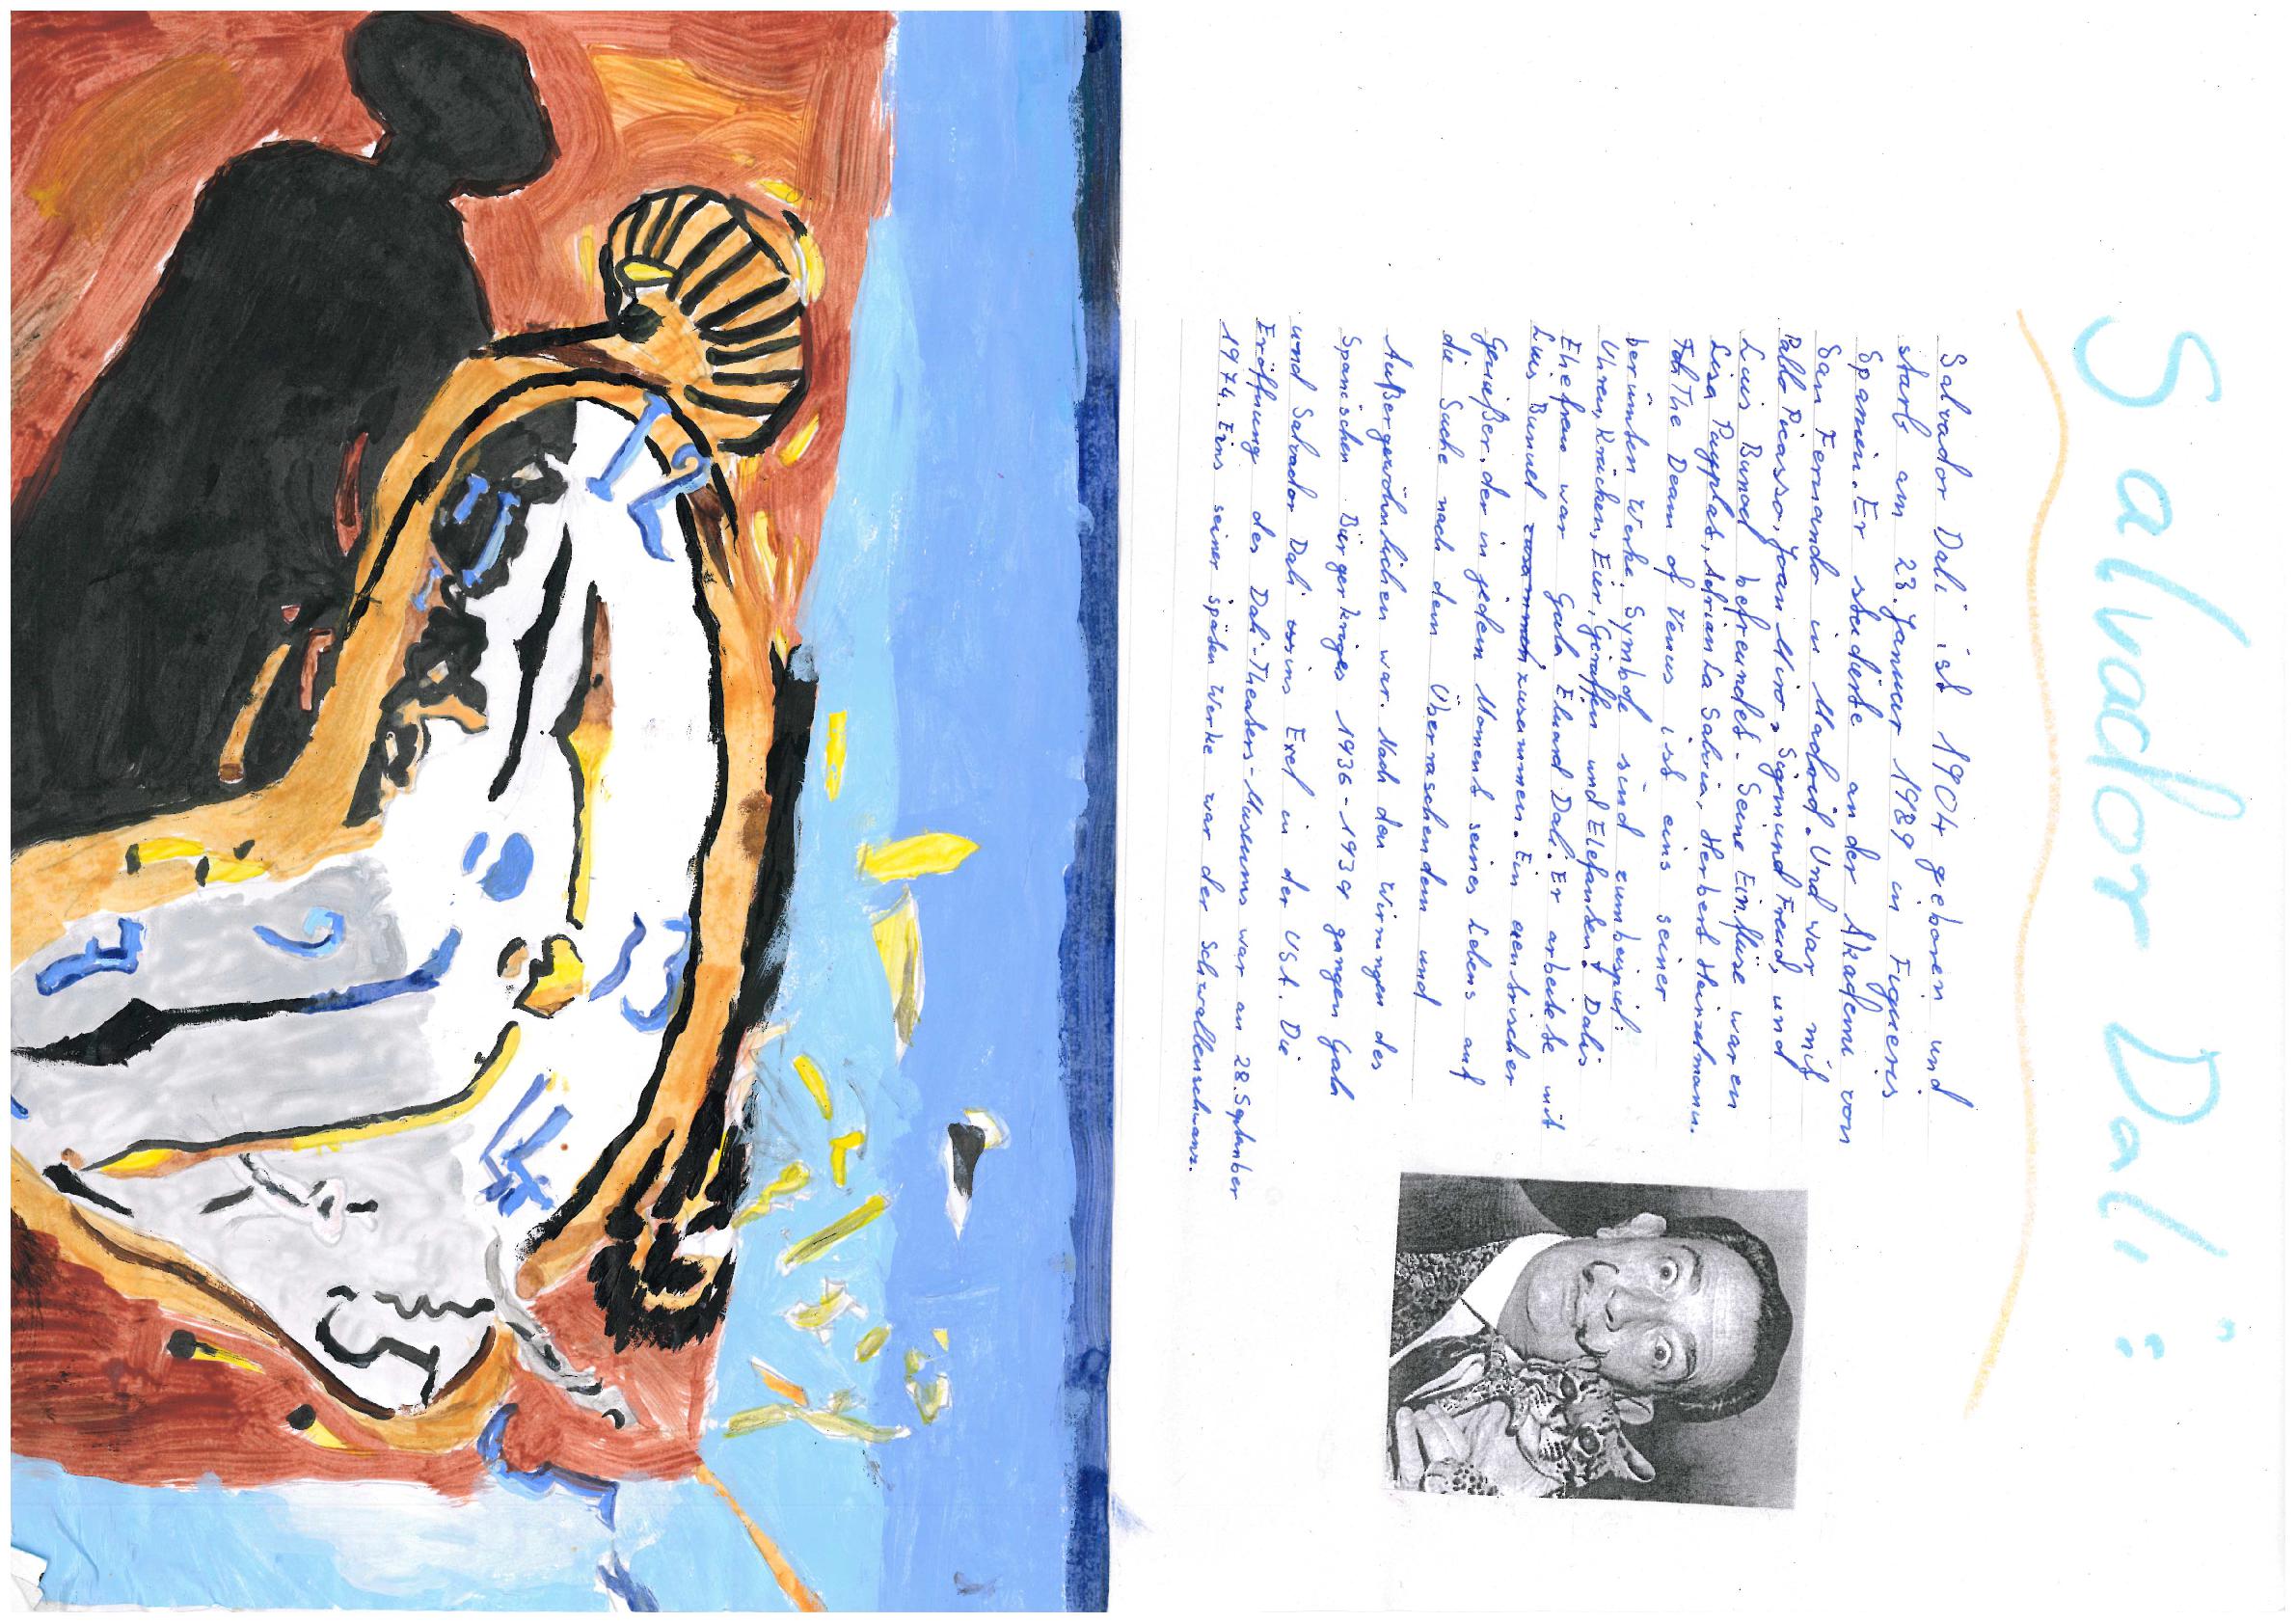 Salvador Dali:
Salvador Dali ist 1904 geboren und
starb am 23. Januar 1989 in Figueris
Spanien. Er studierte an der Akademi von
San Fernando in Madrid. Und war mit
Pablo Picasso, Joan Miro, Sigmund Freud, und
Luis Bunuel befreundet. Seine Einflüse waren
Lisa Puyplat, Adrian La Salvia, Herbert Heinzelmann.
The Deam of Venus ist eins seiner
berümten Werke. Symbole sind zumbeispiel:
Uhren, Krücken, Eier, Giraffen und Elefanten. Dalis
Ehefrau war Gala Eluard Dali. Er arbeitete mit
Luis Bunuel zusammen. Ein exentrischer
Genießer, der in jedem Moment seines Lebens auf
die Suche nach dem Überraschendem und
Außergewöhnlichen war. Nach den Wirrungen des
Spanischen Bürgerkriges 1936-1939 gangen Gala
und Salvador Dali ins Exel in der USA. Die
Eröffnung des Dali-Theaters-Museums war an 28. September
1974. Eins seiner späten Werke war der Schwallenschwanz.